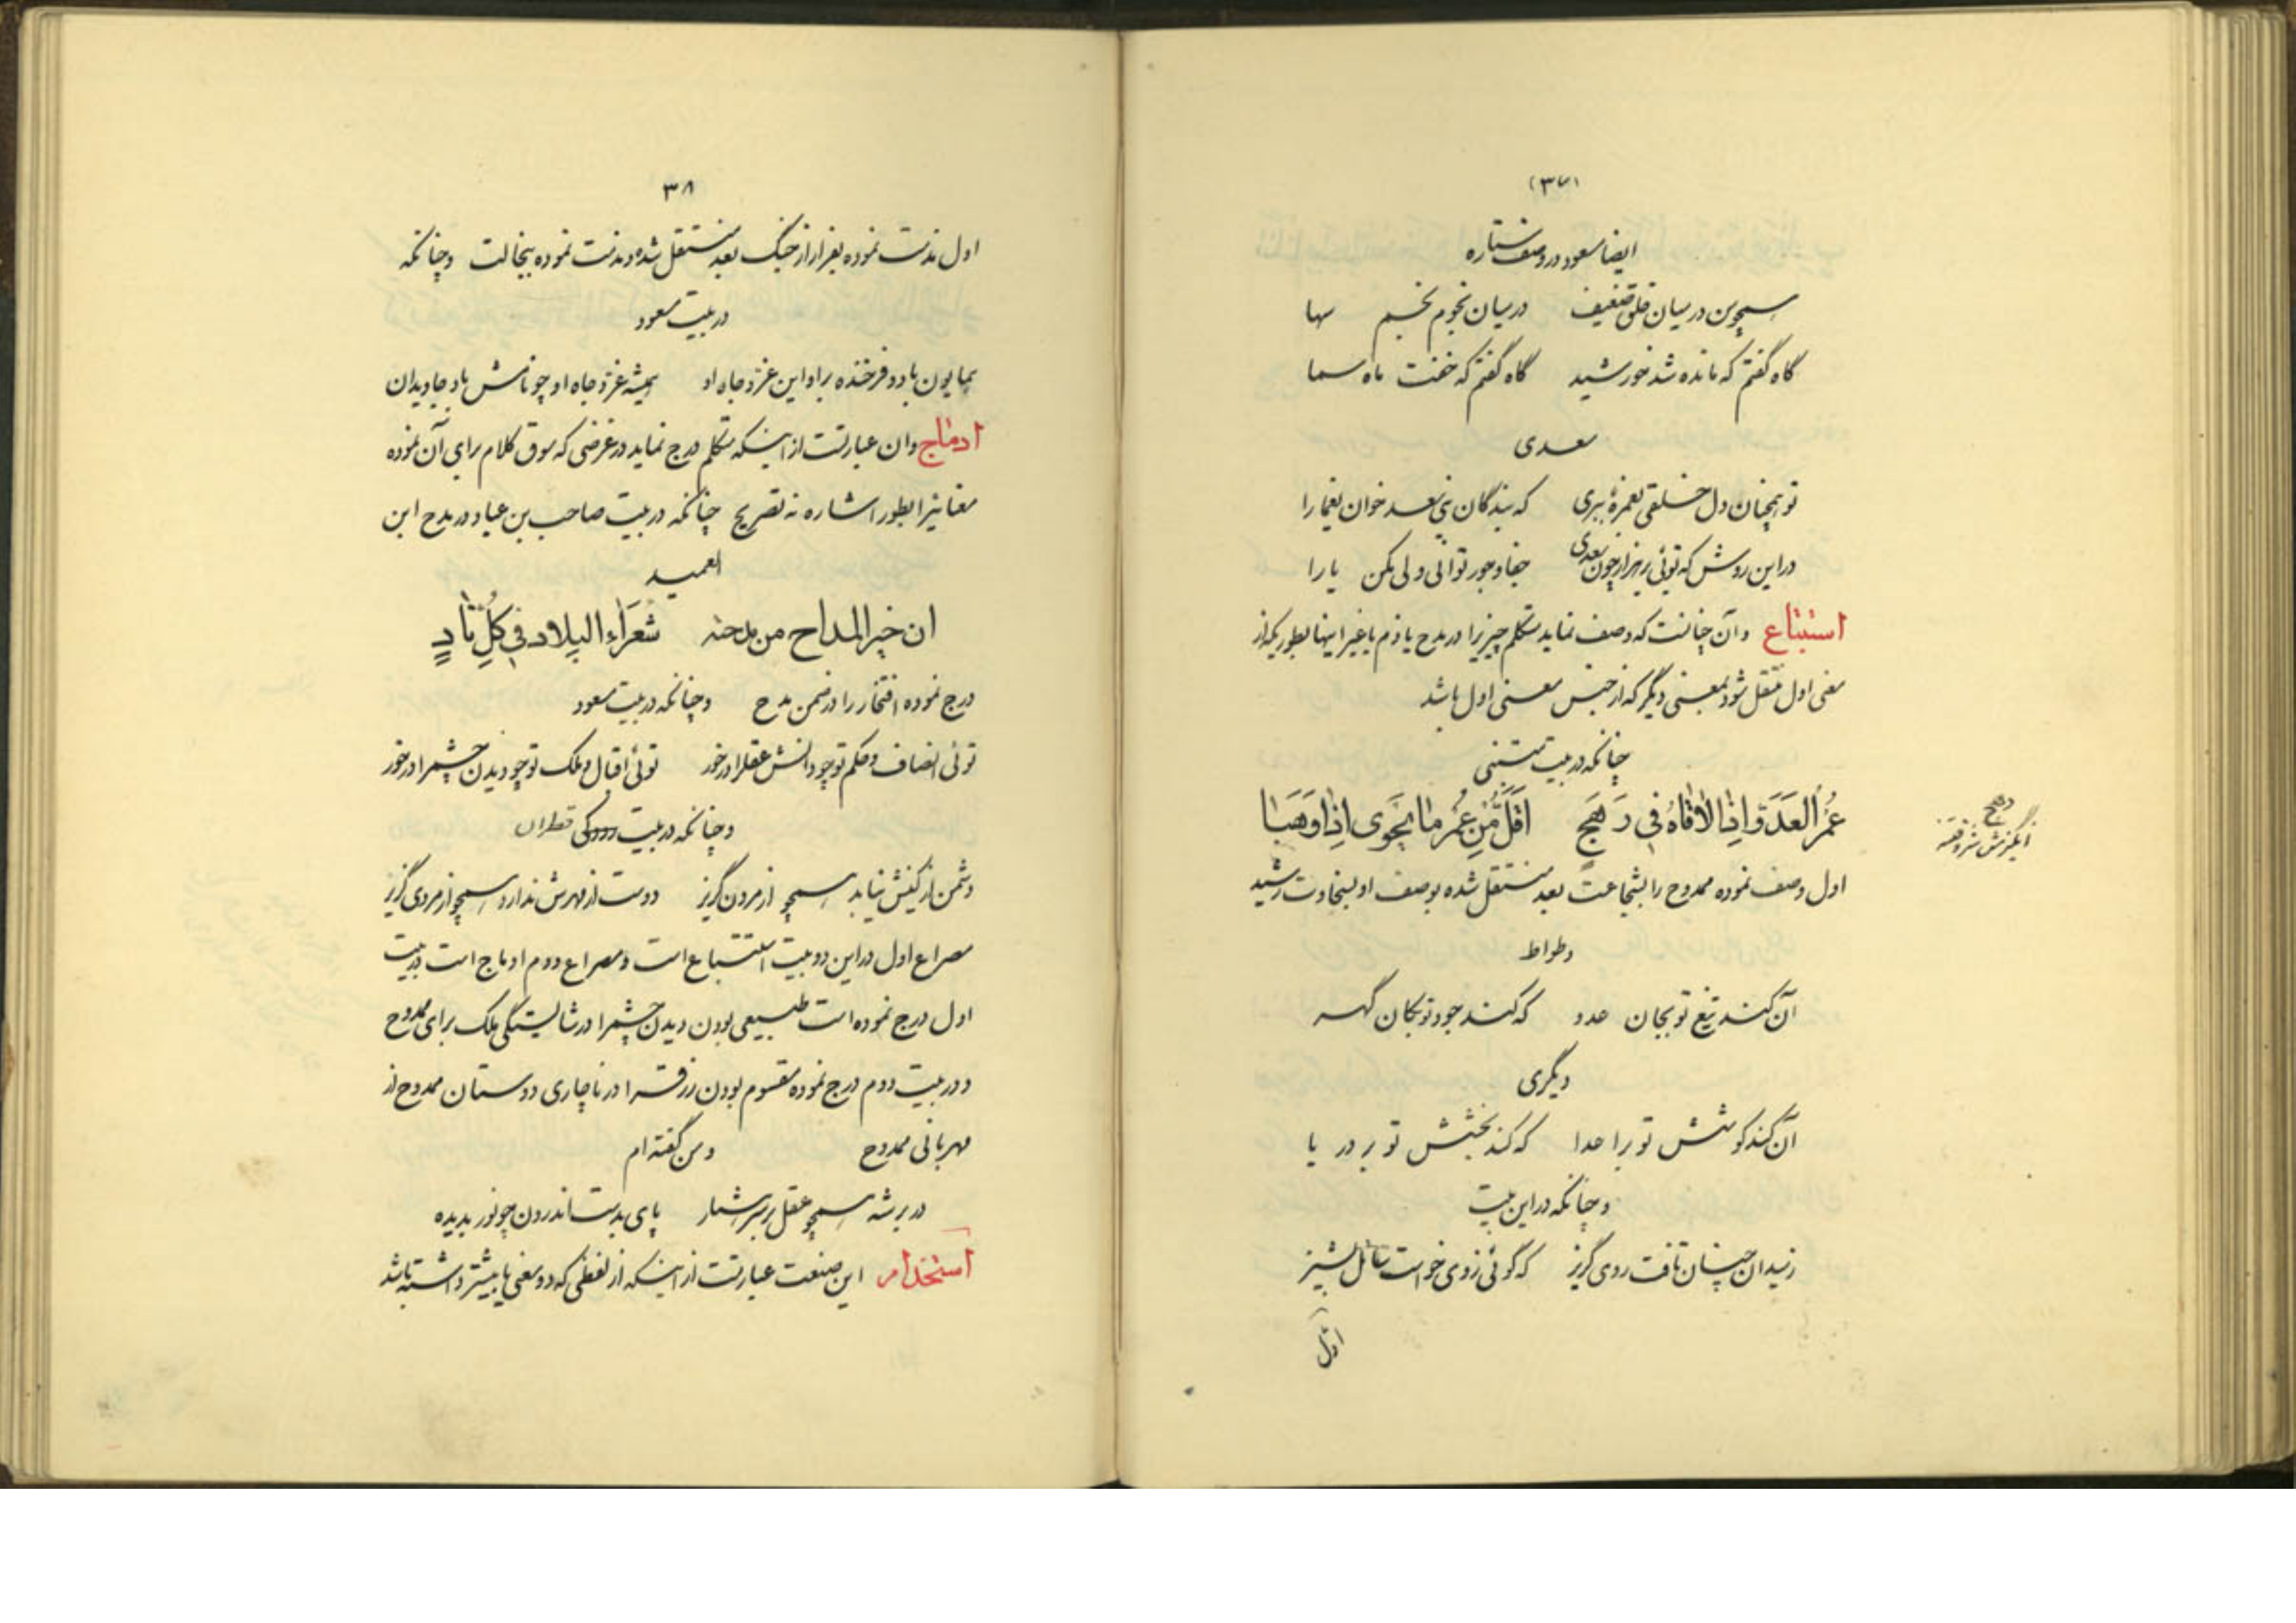 (۳۷)
ایضا مسعود در وصف ستاره
همچو من در میان خلق ضعیف در میان نجوم نجم سها
گاه گفتم که مانده شد خورشید گاه گفتم که خفت ماه سما
سعدی
تو همچنان دل خلقی بغمزهٔ ببری که بندگان بنی سعد خوان یغما را
در این روش که توئی بر هزار چون سعدی جفا و جور توانی ولی مکن یارا
استتباع و آن چنانست که وصف نماید متکلم چیزیرا در مدح یا ذم یا غیر اینها بطوریکه از
معنی اول منتقل شود بمعنی دیگر که از جنس معنی اول باشد
چنانکه در بیت متنبی
عُمْرُ العَدُوِّ اِذا لاقاهُ فی رَهَجٍ اَقَلُّ مِن عُمْرِ ما یَحْوی اِذا وَهَبا
رهج
انگیزش شر و فتنه
اول وصف نموده ممدوح را بشجاعت بعد منتقل شده بوصف او بسخاوت رشید
وطواط
آن کند تیغ تو بجان عدو که کند جود تو بکان گهر
دیگری
آن کند کوشش تو بر اعدا که کند بخشش تو بر دریا
و چنانکه در این بیت
ز میدان چنان تافت روی گریز که گوئی ز وی خواست سائل پشیز
اول
۳۸
اول مذمت نموده بفرار از جنگ بعد منتقل شده و مذمت نموده ببخالت و چنانکه
در بیت مسعود
همایون باد و فرخنده بر او این عز و جاه او همیشه عز و جاه او چو نامش باد جاویدان
ادماج و ان عبارتست از اینکه متکلم درج نماید در غرضی که سوق کلام برای آن نموده
معنا نیرا بطور اشاره نه تصریح چنانکه در بیت صاحب بن عباد در مدح ابن
العمید
ان خیر المداح من مدحته شُعَراء البلاد فی کُلِّ نادٍ
درج نموده افتخار را در ضمن مدح و چنانکه در بیت مسعود
توئی انصاف و حکم تو چو دانش عقلرا در خور توئی اقبال و ملک تو چو دیدن چشمرا در خور
و چنانکه در بیت رودکی قطران
دشمن از کینش نیابد همچو از مردن گریز دوست از مهرش ندارد همچو از مردی گریز
مصراع اول در این دو بیت استتباع است و مصراع دوم ادماج است در بیت
اول درج نموده است طبیعی بودن دیدن چشمرا در شایستگی ملک برای ممدوح
و در بیت دوم درج نموده مقسوم بودن رزق را در ناچاری دوستان ممدوح از
مهربانی ممدوح و من گفته ام
در بر شه همچو عقل بر سر هشیار پای بدست اندرون چو نور بدیده
استخدام این صنعت عبارتست از اینکه از لفظی که دو معنی یا بیشتر داشته باشد